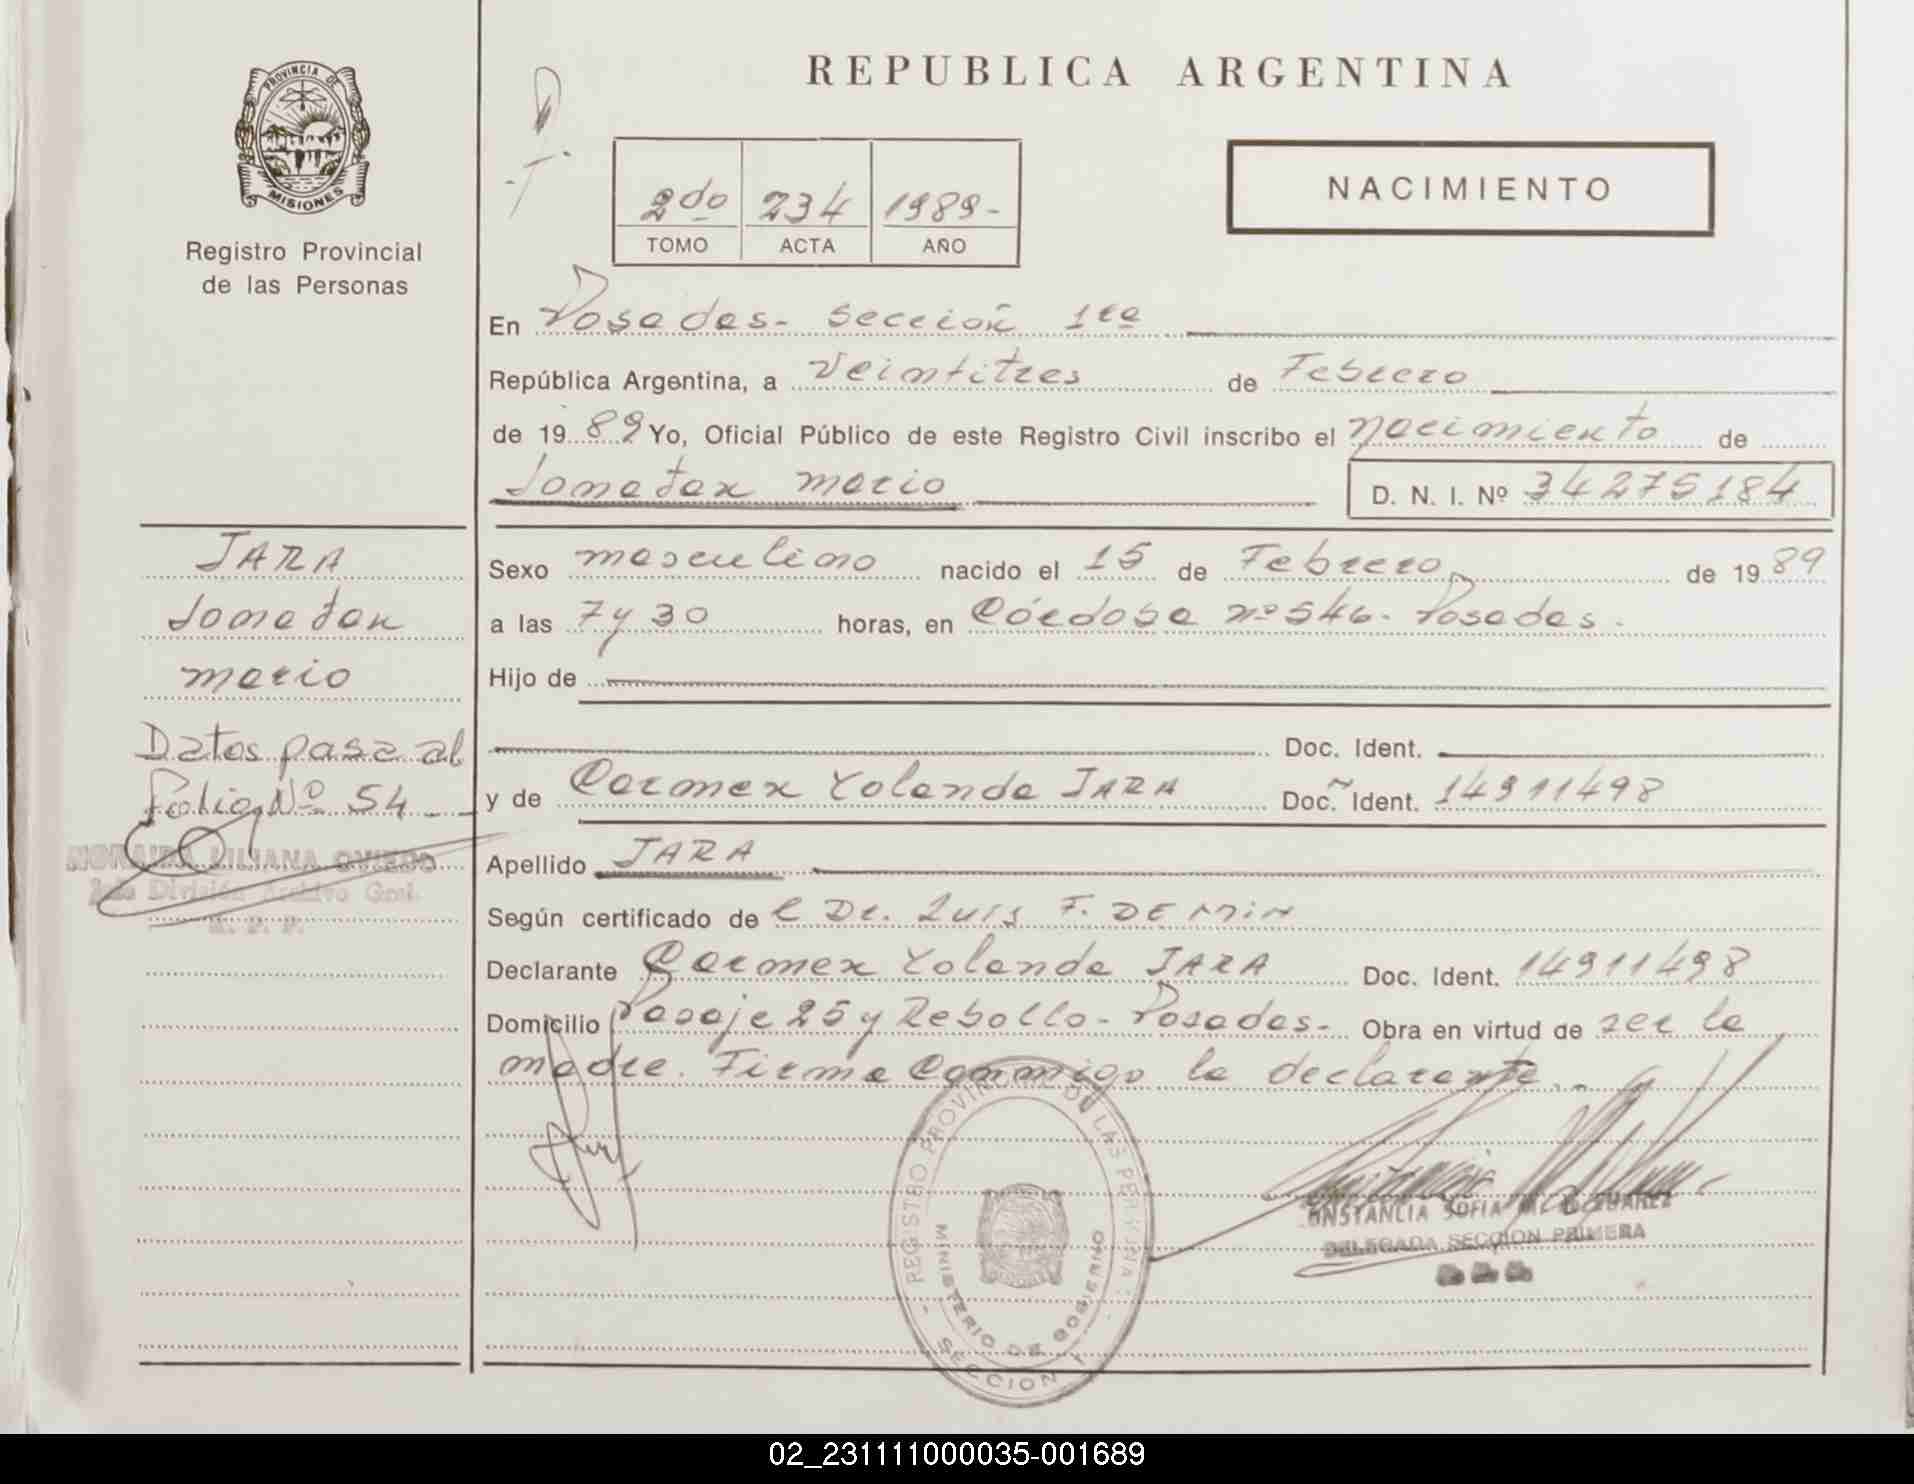 REPUBLICA ARGENTINA
PROVINCIA DE
MISIONES
Registro Provincial
de las Personas
2do 234 1989-
TOMO ACTA AÑO
NACIMIENTO
En Posadas- Sección 1ra
República Argentina, a Veintitres de Febrero
de 1989 Yo, Oficial Público de este Registro Civil inscribo el nacimiento de
Jonatan Mario D. N. I. Nº 34275184
JARA
Jonatan
Mario
Datos pasa al
Folio Nº 54
NORAIDA LILIANA OVIEDO
Jefe División Archivo Gral.
R. P. P.
Sexo masculino nacido el 15 de Febrero de 1989
a las 7 y 30 horas, en Córdoba nº 546- Posadas.
Hijo de
Doc. Ident.
y de Carmen Yolanda JARA Doc. Ident. 14911498
Apellido JARA
Según certificado de l Dr. Luis F. DEMIN
Declarante Carmen Yolanda JARA Doc. Ident. 14911498
Domicilio Pasaje 25 y Rebollo- Posadas- Obra en virtud de ser la
madre. Firma Conmigo la declarante.-
REGISTRO PROVINCIAL DE LAS PERSONAS
MINISTERIO DE GOBIERNO
SECCION 1
CONSTANCIA SOFIA SUAREZ
DELEGADA SECCION PRIMERA
02_231111000035-001689